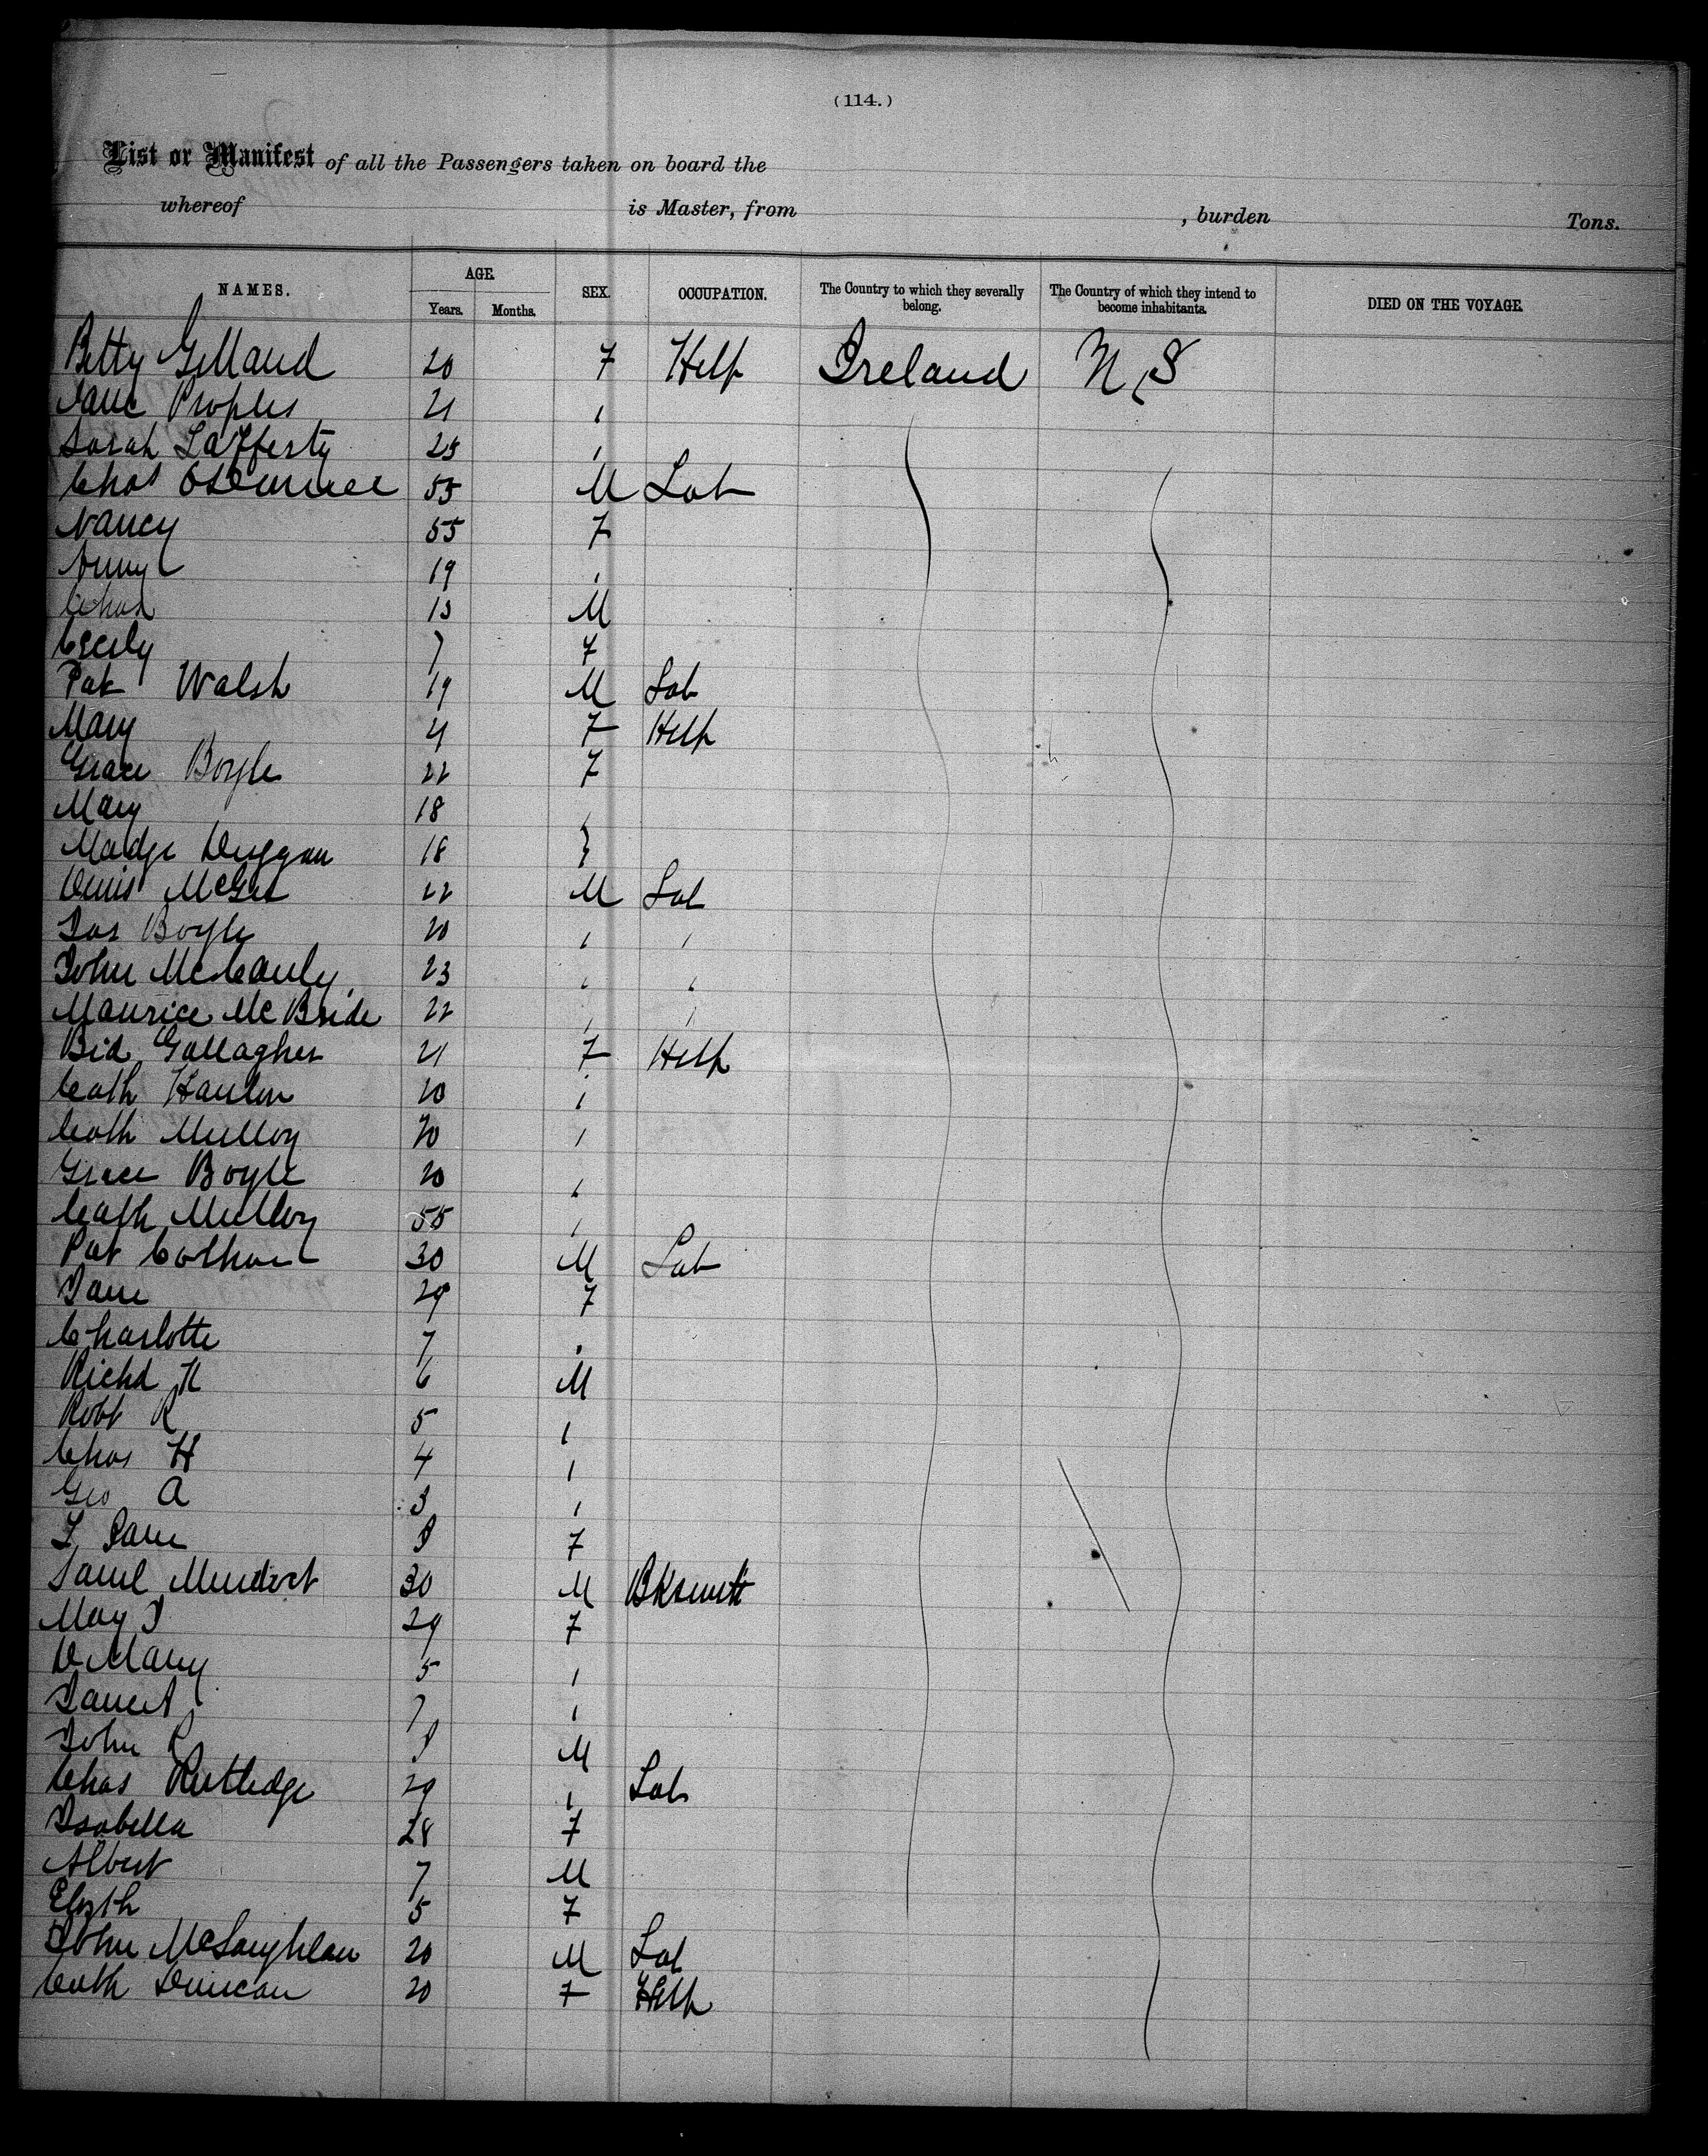 (114.)
List or Manifest of all the Passengers taken on board the
whereof is Master, from , burden Tons.
NAMES. AGE. Years. Months. SEX. OCCUPATION. The Country to which they severally belong. The Country of which they intend to become inhabitants. DIED ON THE VOYAGE.
Betty Gilland 20 F Help Ireland U S
Jane Peoples 21 "
Sarah Lafferty 25 "
Chas 55 M Lab
Nancy 55 F
19 "
Chas 13 M
Cecily 7 F
Pat Walsh 19 M Lab
Mary 21 F Help
Grace Boyle 22 F
Mary 18 "
Madge Duggan 18 }
Denis McGee 22 M Lab
Jas Boyle 20 " "
John McCauly 23 " "
Maurice McBride 22 " "
Bid Gallagher 21 F Help
Cath Hanlon 20 "
Cath Mulloy 20 "
Grace Boyle 20 "
Cath Mulloy 55 "
Pat Colhoun 30 M Lab
Jane 29 F
Charlotte 7 "
Richd H 6 M
Robt R 5 "
Chas H 4 "
Geo A 3 "
Jane F
Saml 30 M BKsmith
May J 29 F
D Mary 5 "
7 "
John R M
Chas Rutledge 29 " Lab
Isabella 28 F
Albert 7 M
Elizth 5 F
John McLaughlan 20 M Lab
Cath Duncan 20 F Help